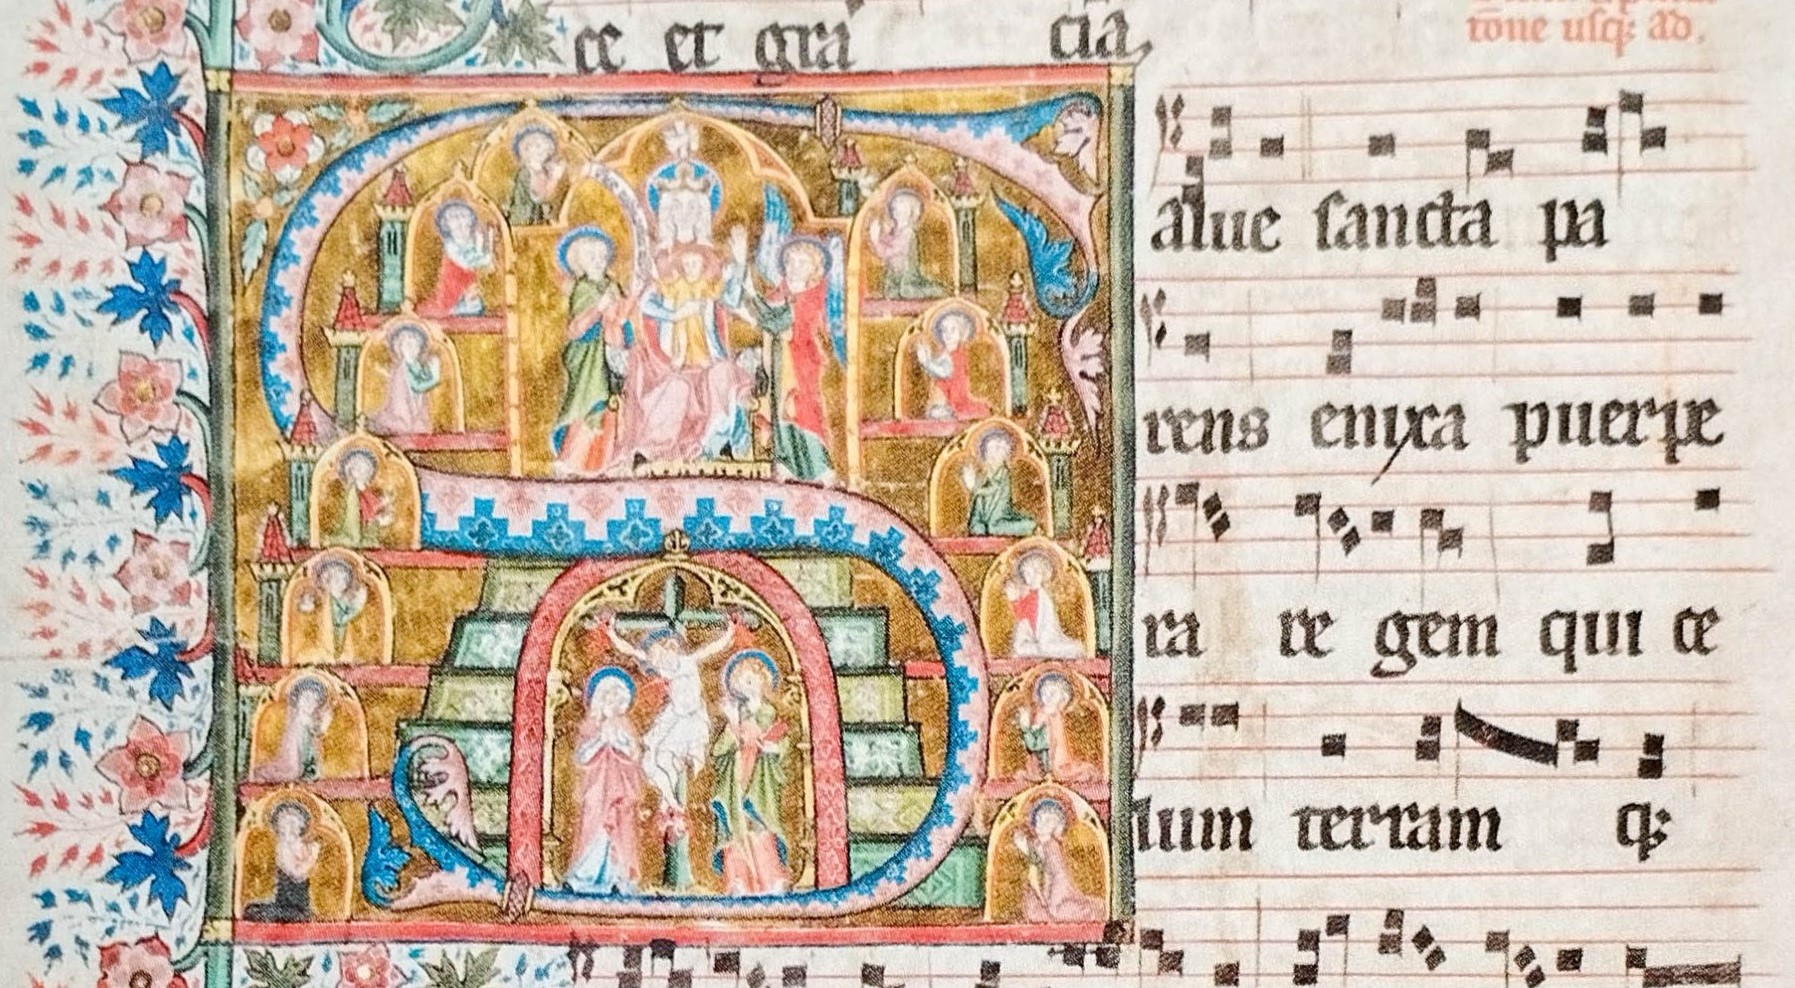 ce et gra cia
tone usq; ad.
alue sancta pa
rens enixa puerpe
ra re gem qui ce
lum terram q;